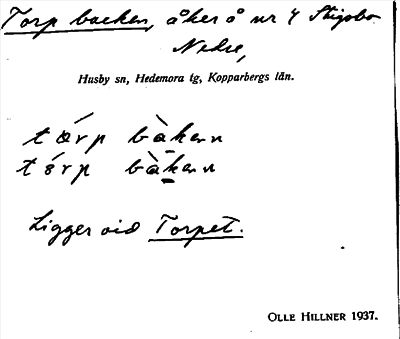 Torp backen, åker å nr 4 Stigsbo
Nedre,
Husby sn, Hedemora tg, Kopparbergs län.
tǿrp bàkern
tǿrp bàkern
Ligger vid Torpet.
OLLE HILLNER 1937.